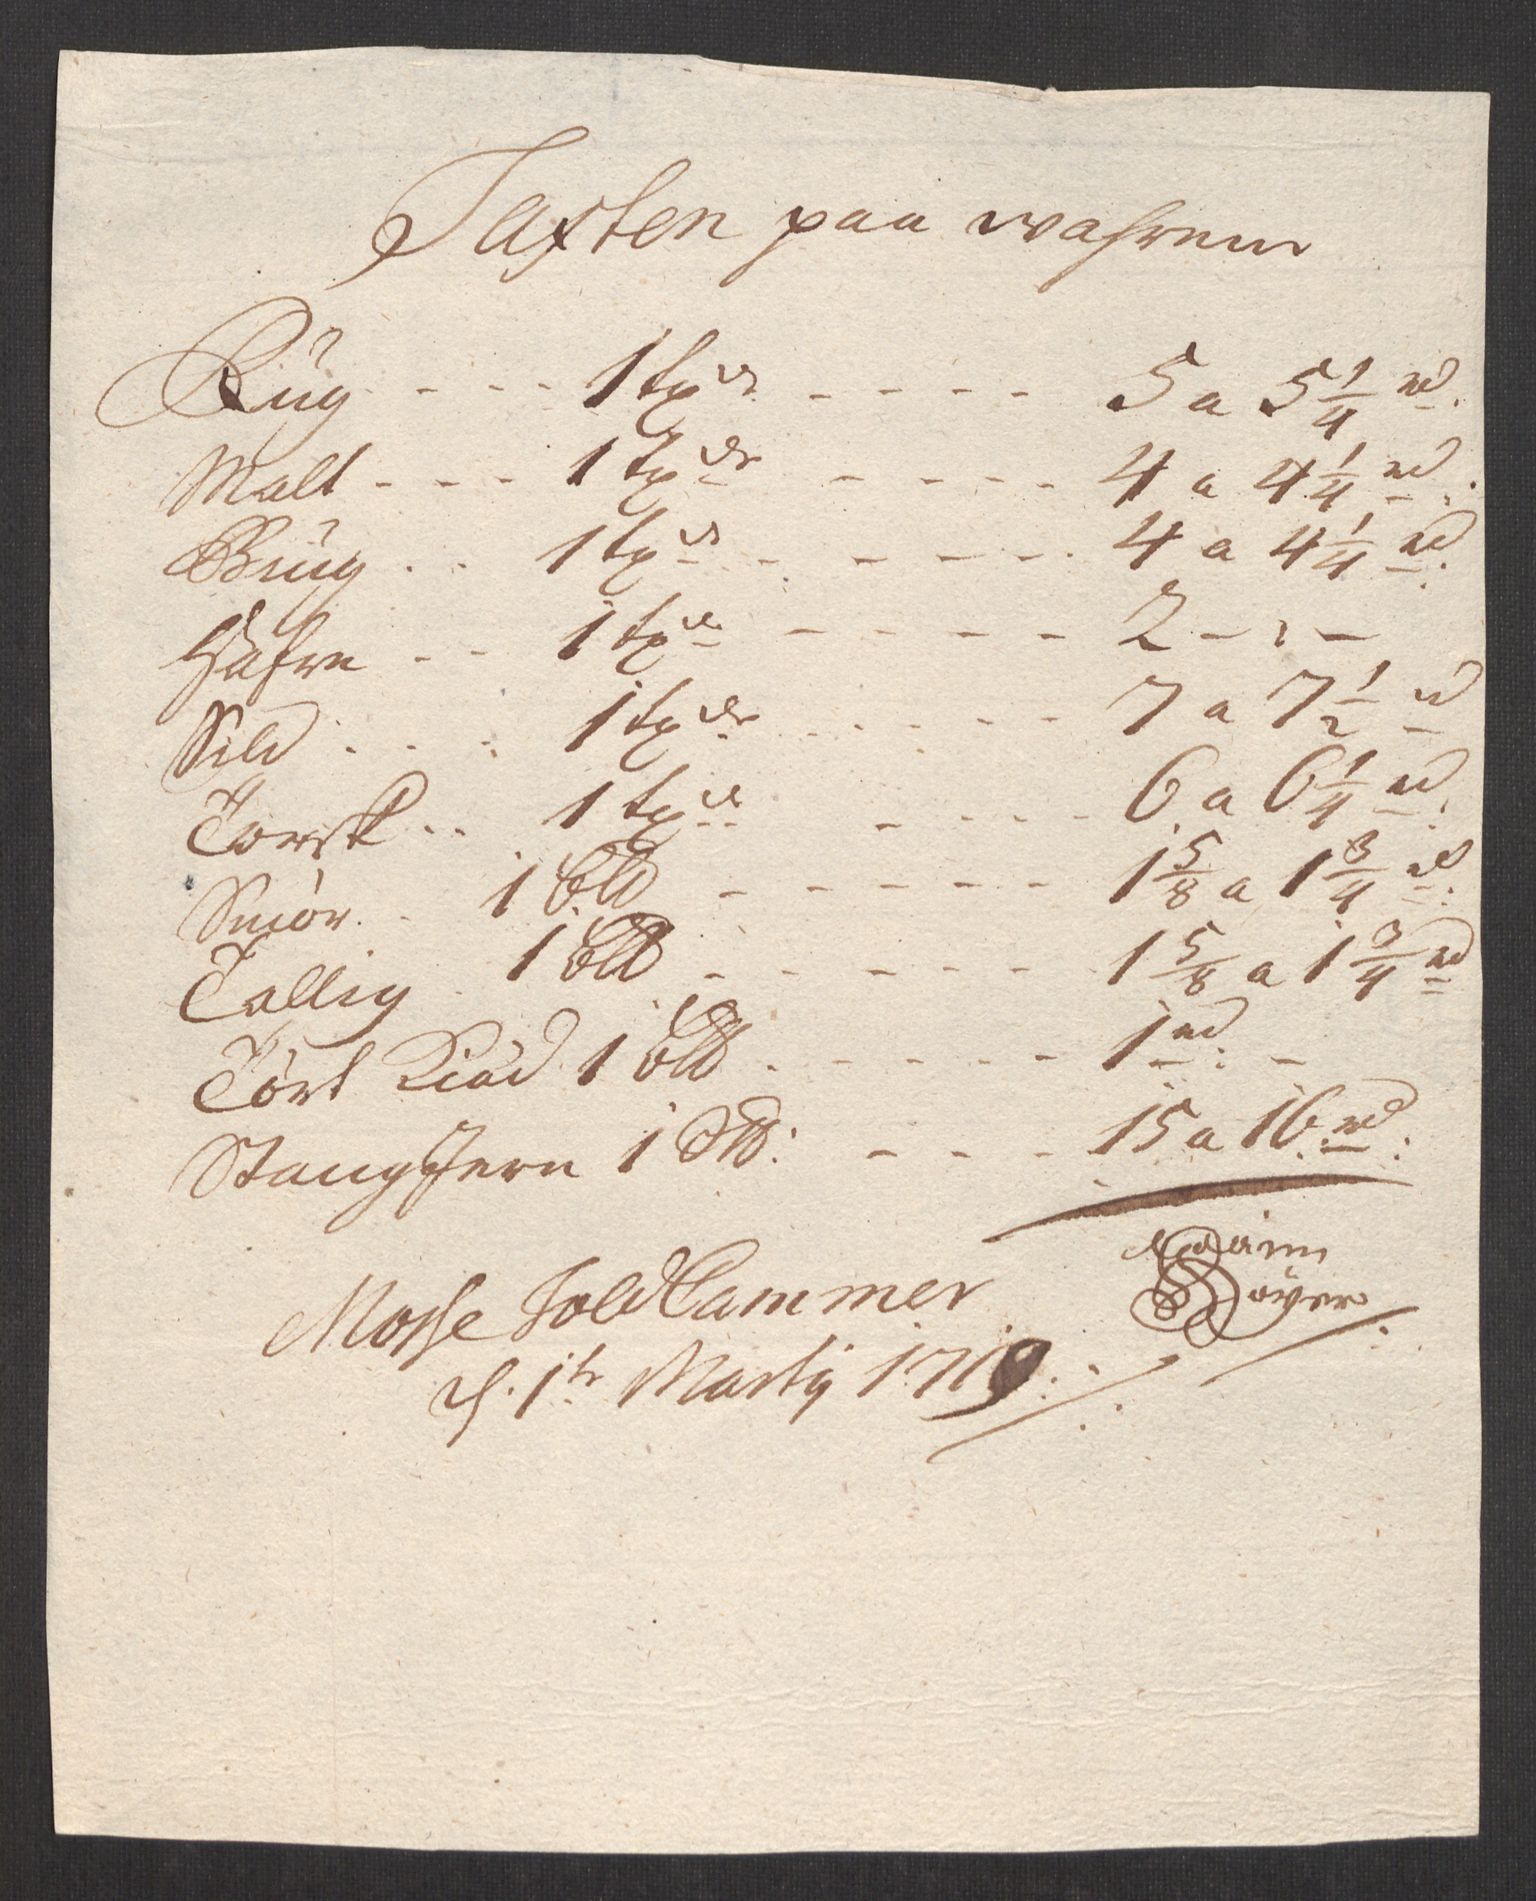 Taxten paa wahrene
Rüg - - - 1 tp de - - - - 5 a 5 1/4 rd.
Malt - - - 1 tp de - - - - 4 a 4 1/4 rd.
Biüg . . 1 tp de - - - - 4 a 4 1/4 rd.
Hafre - - 1 tp de - - - - 2 - " -
Sild . . . 1 tp de - - - - 7 a 7 1/2 rd
Torsk . . 1 tp de - - - - 6 a 6 1/4 rd.
Smör . 1 - - - - - 1 5/8 a 1 3/4 rd.
Tallig . 1 - - - - - 1 5/8 a 1 3/4 rd
Tört Kiöd 1 - - - - 1 rd. -
Stang Jern 1 - - - 15 a 16 rd.
Adam
Mosse Told Cammer
Söyer
d. 1te Martij 1719